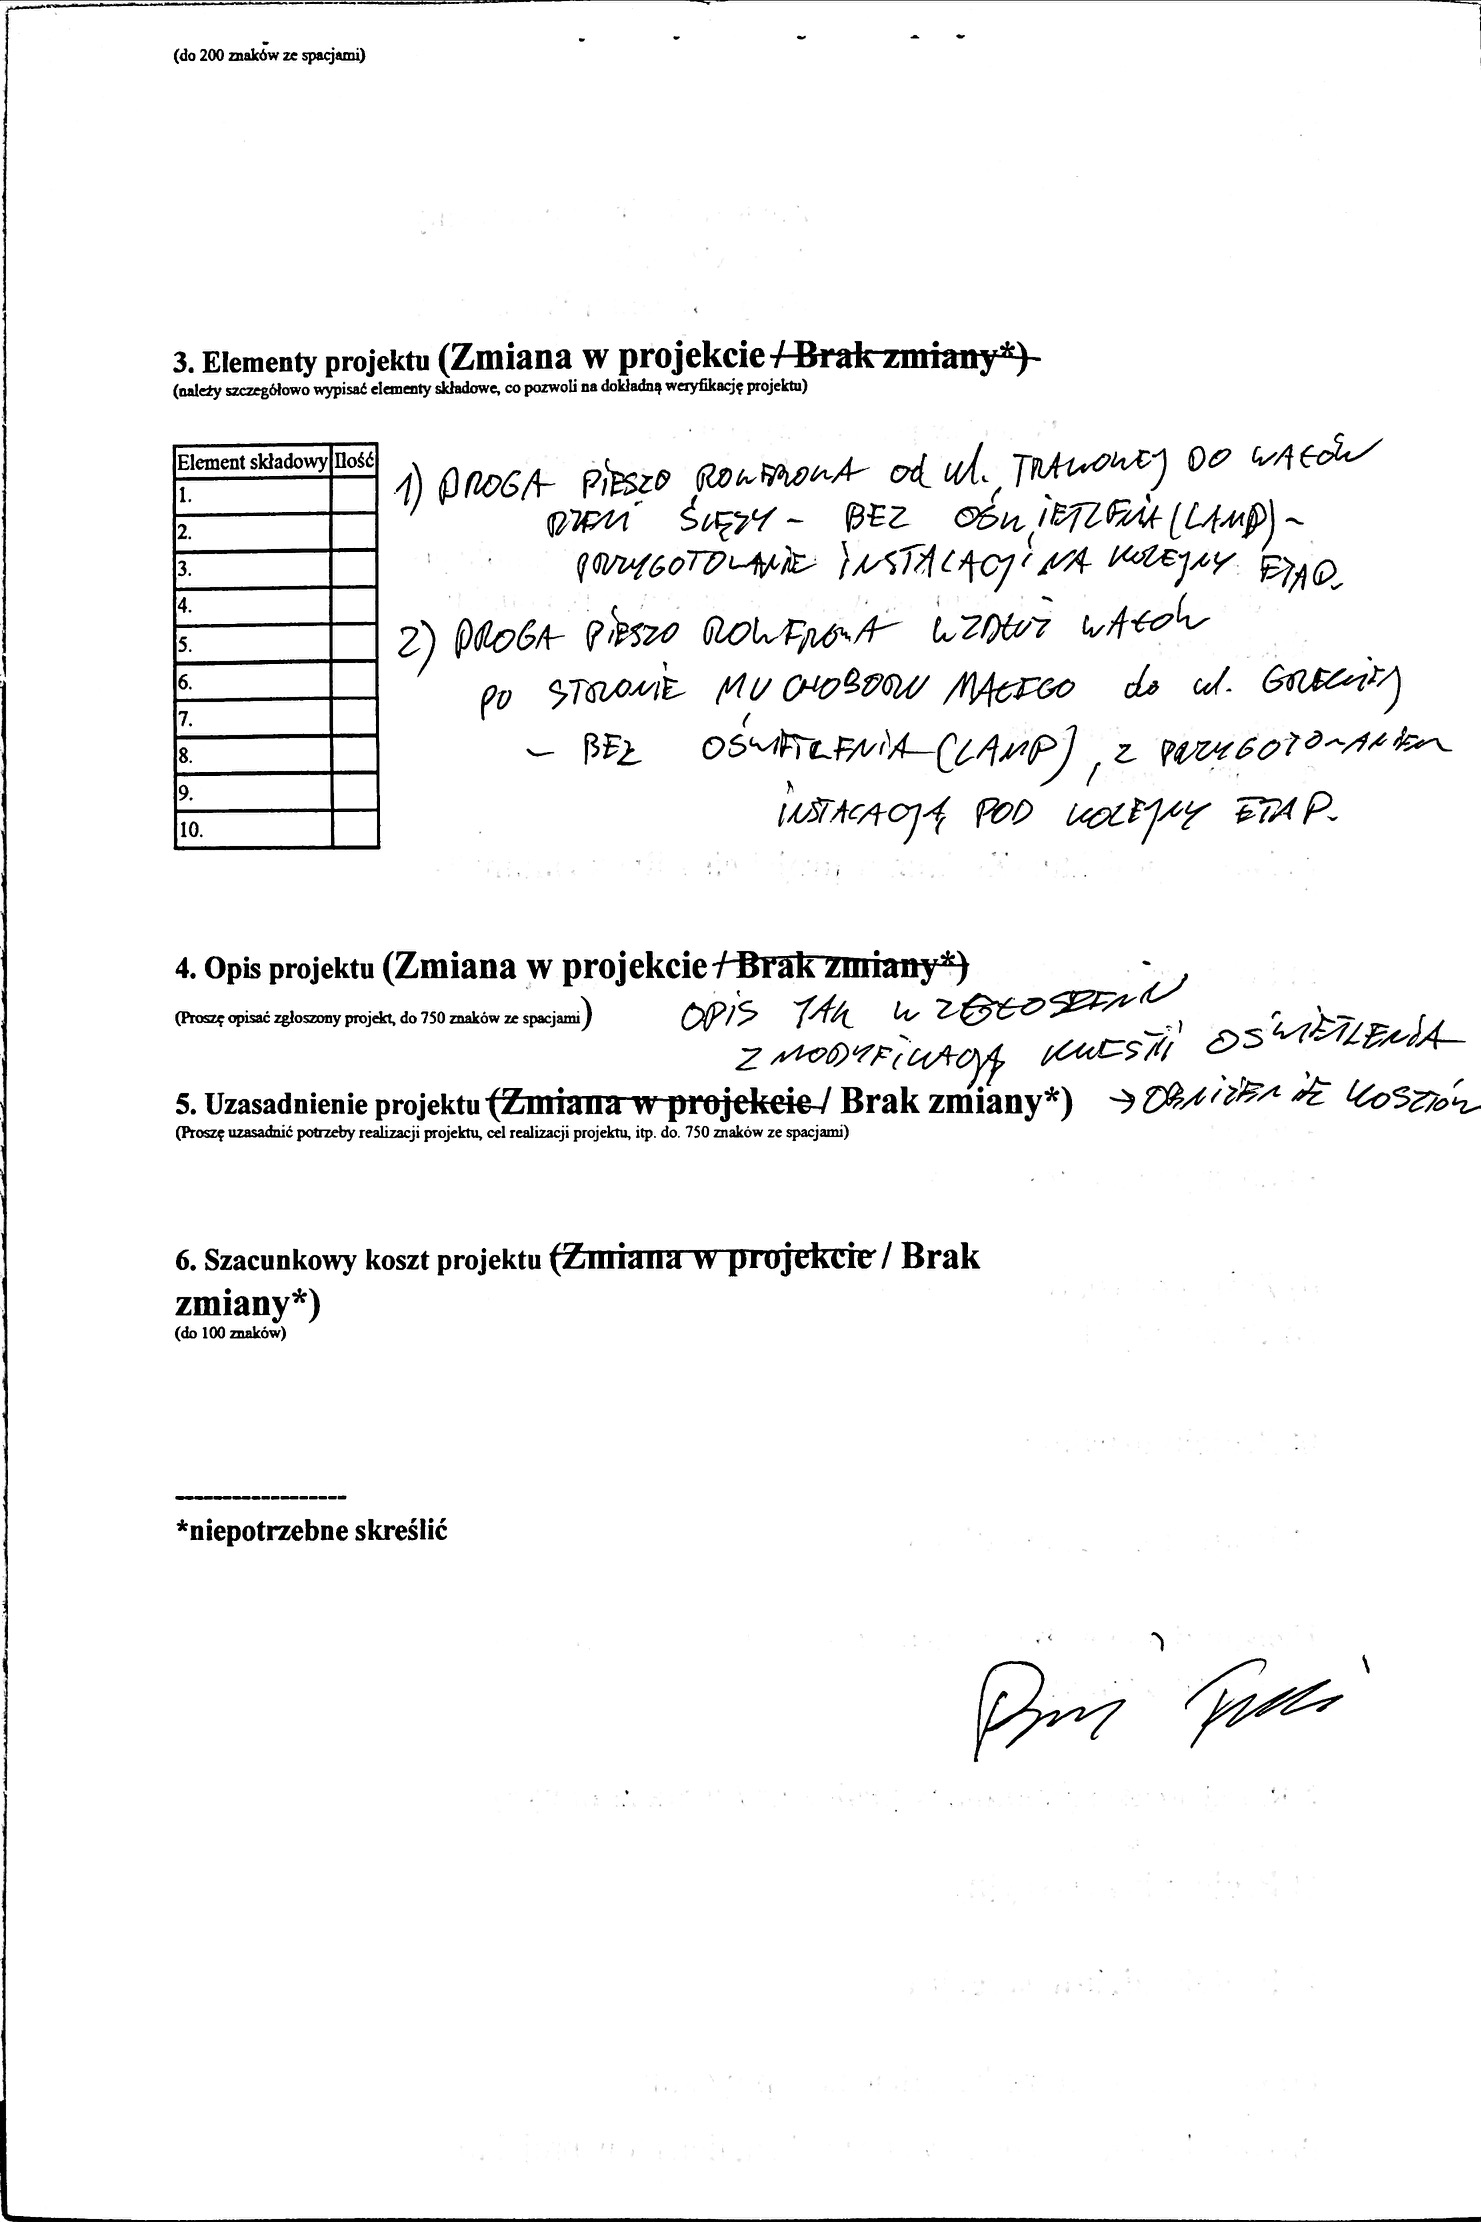 (do 200 znaków ze spacjami)
3. Elementy projektu (Zmiana w projekcie / Brak zmiany*)
(należy szczegółowo wypisać elementy składowe, co pozwoli na dokładną weryfikację projektu)
Element składowy Ilość
1.
2.
3.
4.
5.
6.
7.
8.
9.
10.
1) DROGA PIESZO ROWEROWA od ul. TRAWOWEJ DO WAŁÓW
RZEKI ŚLĘZY - BEZ OŚWIETLENIA (LAMP) -
PRZYGOTOWANIE INSTALACJI NA KOLEJNY ETAP.
2) DROGA PIESZO ROWEROWA WZDŁUŻ WAŁÓW
PO STRONIE MUCHOBORU MAŁEGO do ul. GRECKIEJ
- BEZ OŚWIETLENIA (LAMP), Z PRZYGOTOWANIEM
INSTALACJĄ POD KOLEJNY ETAP.
4. Opis projektu (Zmiana w projekcie / Brak zmiany*)
(Proszę opisać zgłoszony projekt, do 750 znaków ze spacjami)
OPIS JAK W ZGŁOSZENIU
Z MODYFIKACJĄ KWESTII OŚWIETLENIA
→ OBNIŻENIE KOSZTÓW
5. Uzasadnienie projektu (Zmiana w projekcie / Brak zmiany*)
(Proszę uzasadnić potrzeby realizacji projektu, cel realizacji projektu, itp. do. 750 znaków ze spacjami)
6. Szacunkowy koszt projektu (Zmiana w projekcie / Brak
zmiany*)
(do 100 znaków)
------------------
*niepotrzebne skreślić